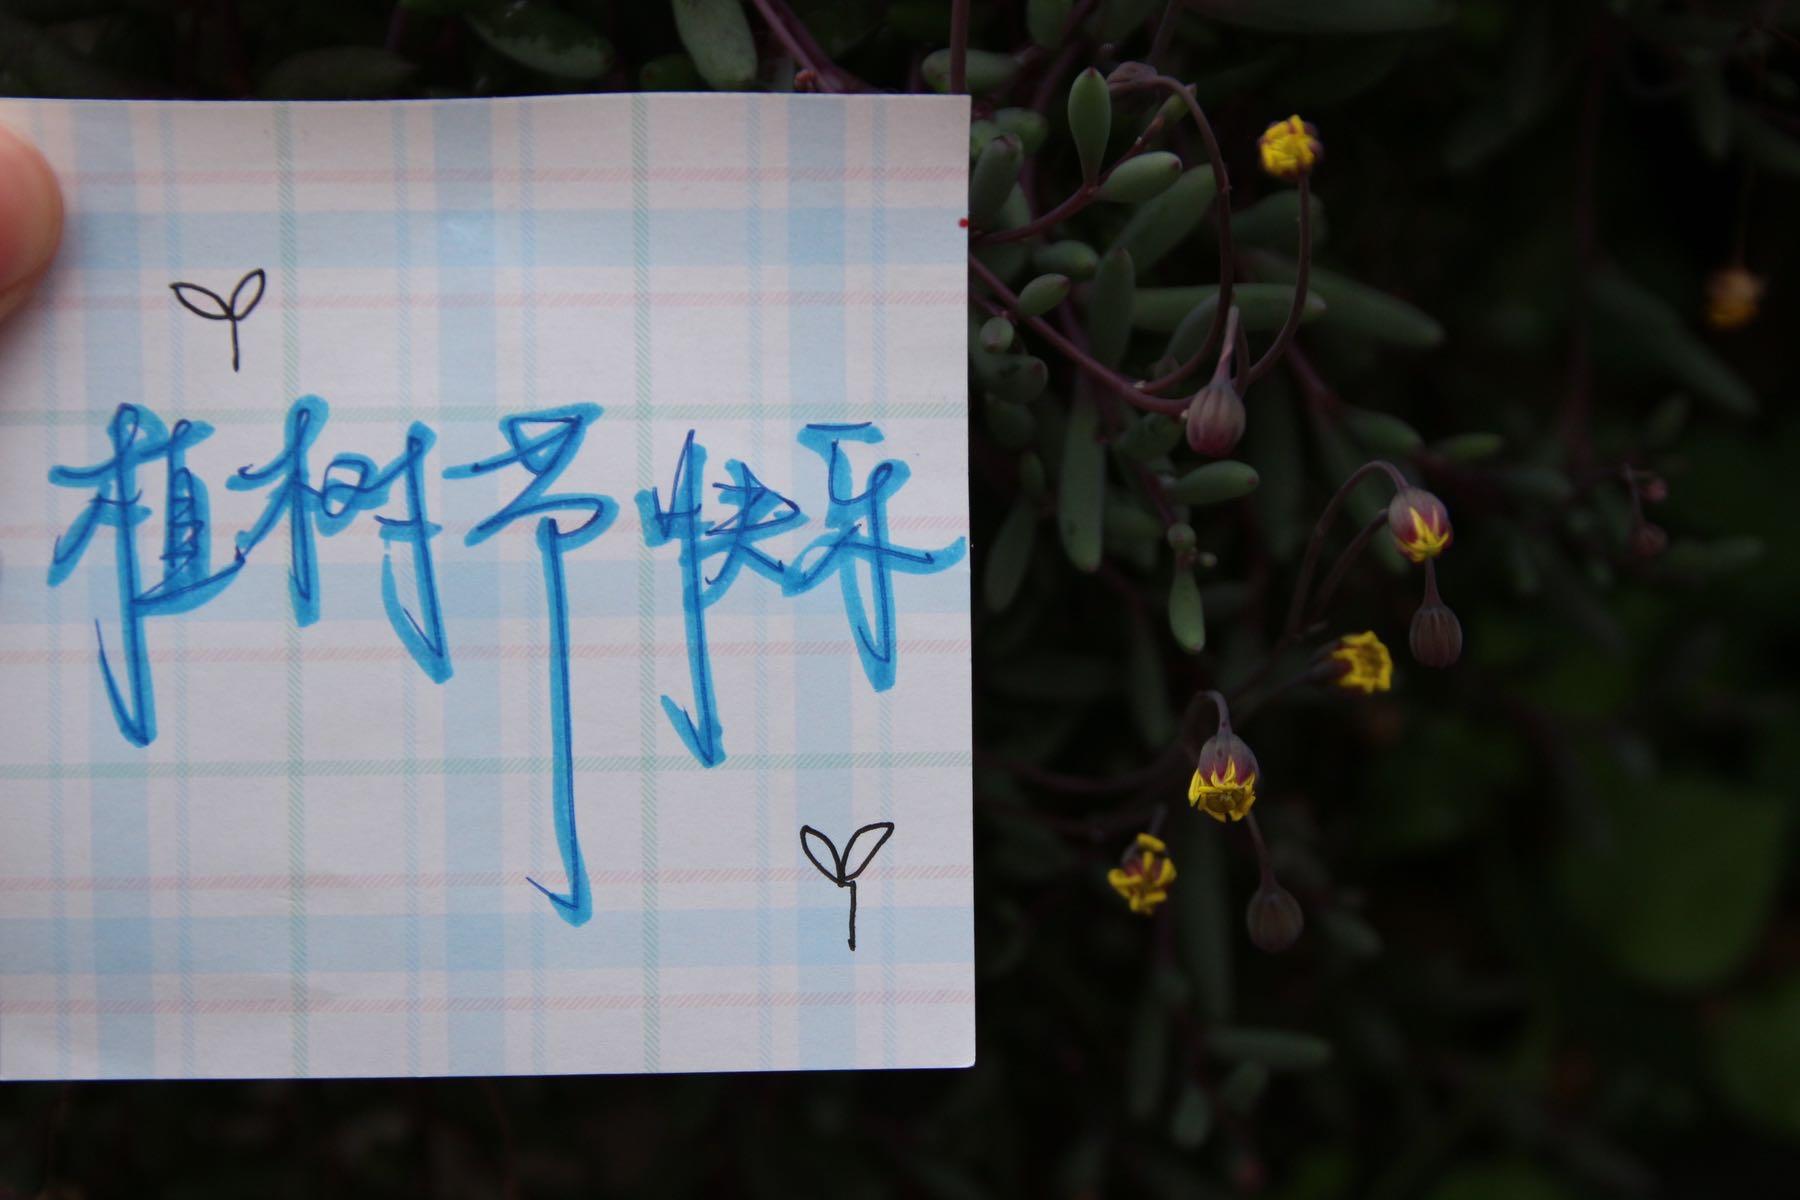 植树节快乐